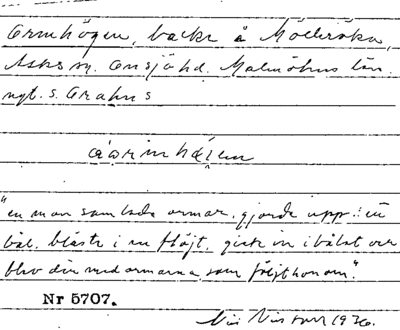 Ormhögen, backe å Möllröka,
Asks sn. Onsjö hd. Malmöhus län.
uppt. S. Grahns

"en man som lade ormar, gjorde upp en
bål, blåste i en flöjt, gick in i bålet och
blev där med ormarna, som följt honom".
Nr 5707.
Nils Nilsson 1936.